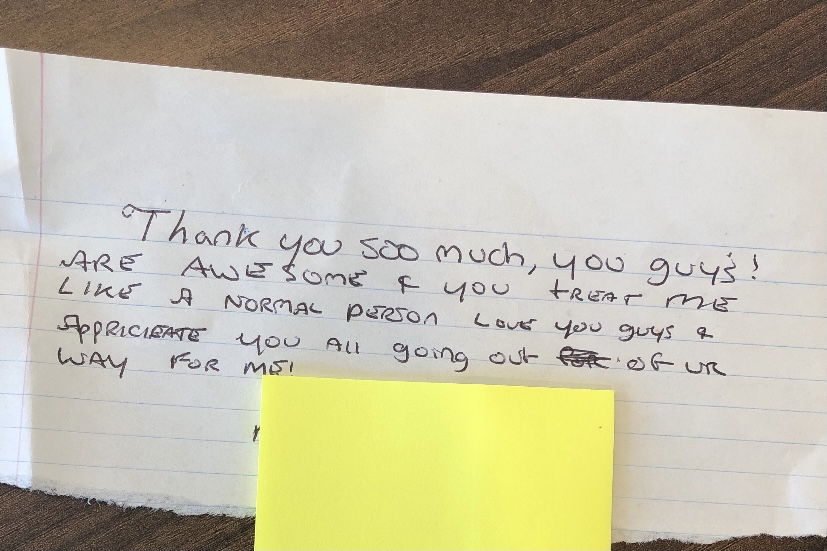 Thank you soo much, you guy's!
ARE AWESOME & you treat me
LIKE A NORMAL PERSON LOVE you guys &
APPRICIEATE you All going out OF UR
WAY FOR ME!